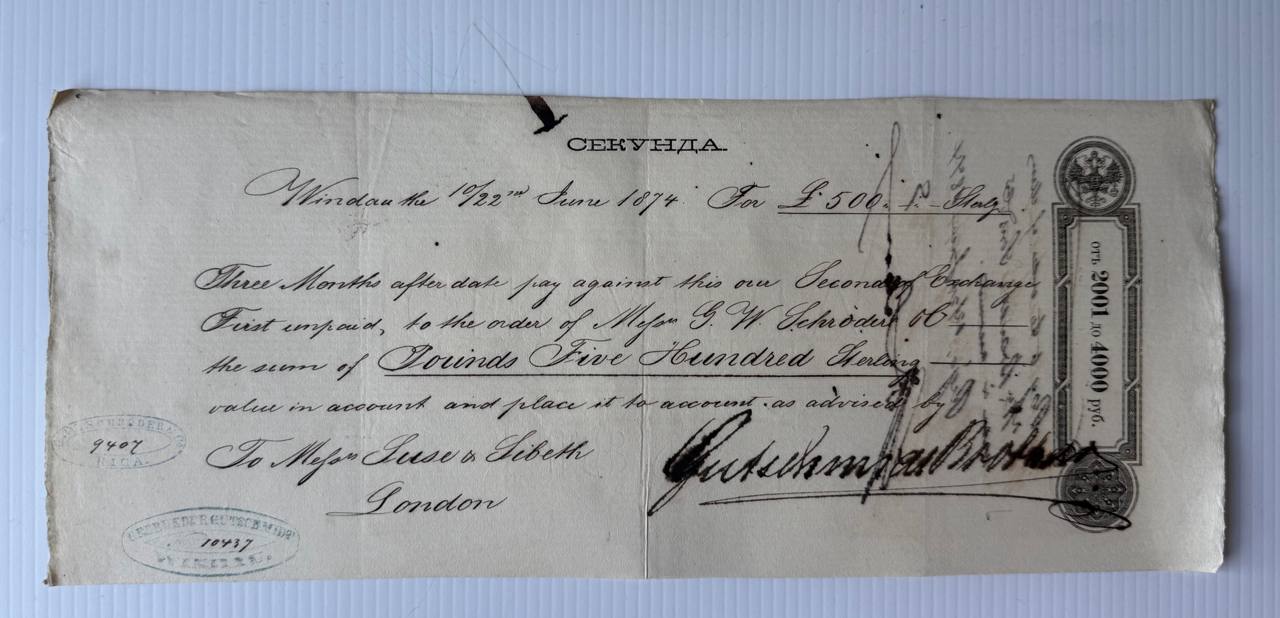 СЕКУНДА.
Windau the 10/22nd June 1874. For £ 500.-.- Sterlg
Three Months after date pay against this our Second of Exchange
First unpaid, to the order of Messrs G. W. Schröder &C
the sum of Pounds Five Hundred Sterling
value in account and place it to account as advised by
To Messrs Suse & Sibeth
London
Gutschmidt Brothers
отъ 2001 до 4000 руб.
9407
RIGA.
GEBRUEDER GUTSCHMIDT
10437
WINDAU.